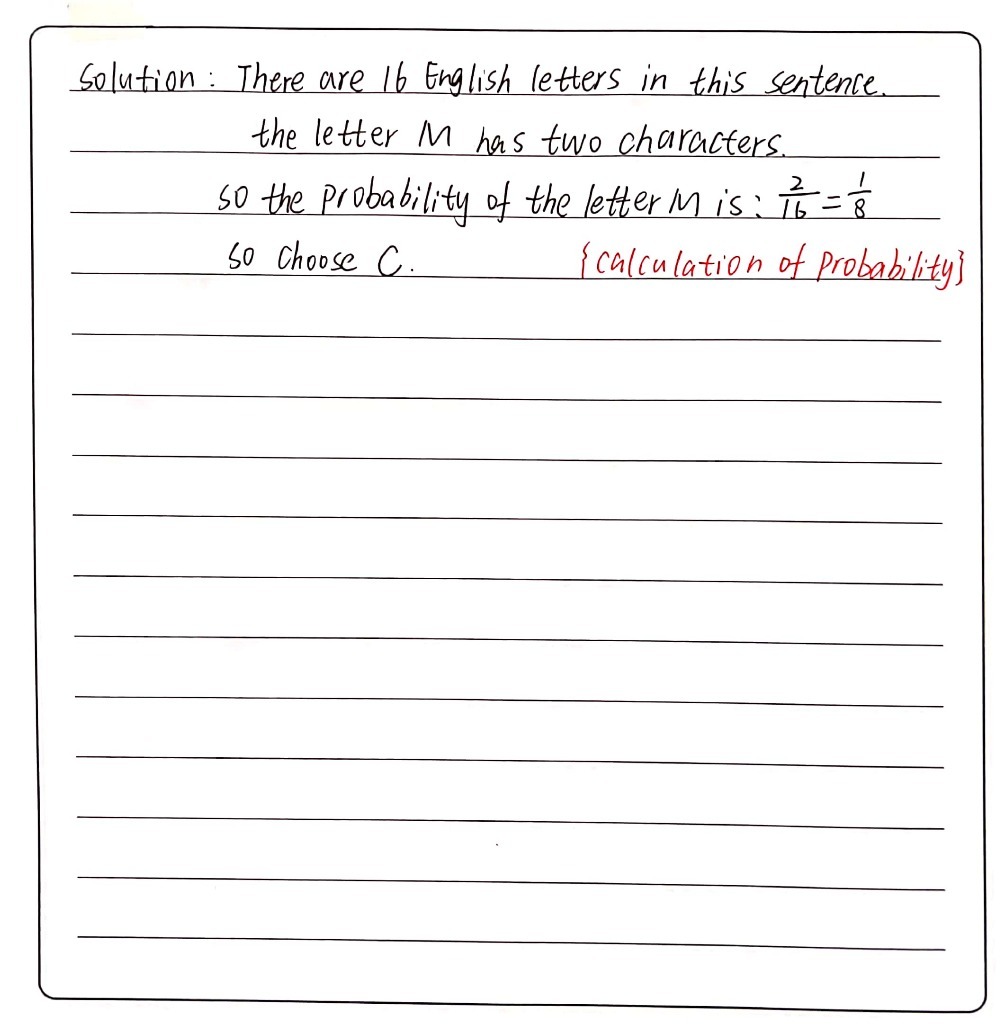 Solution: There are 16 English letters in this sentence.
the letter M has two characters.
so the probability of the letter M is: 2/16 = 1/8
so choose C. {calculation of probability}